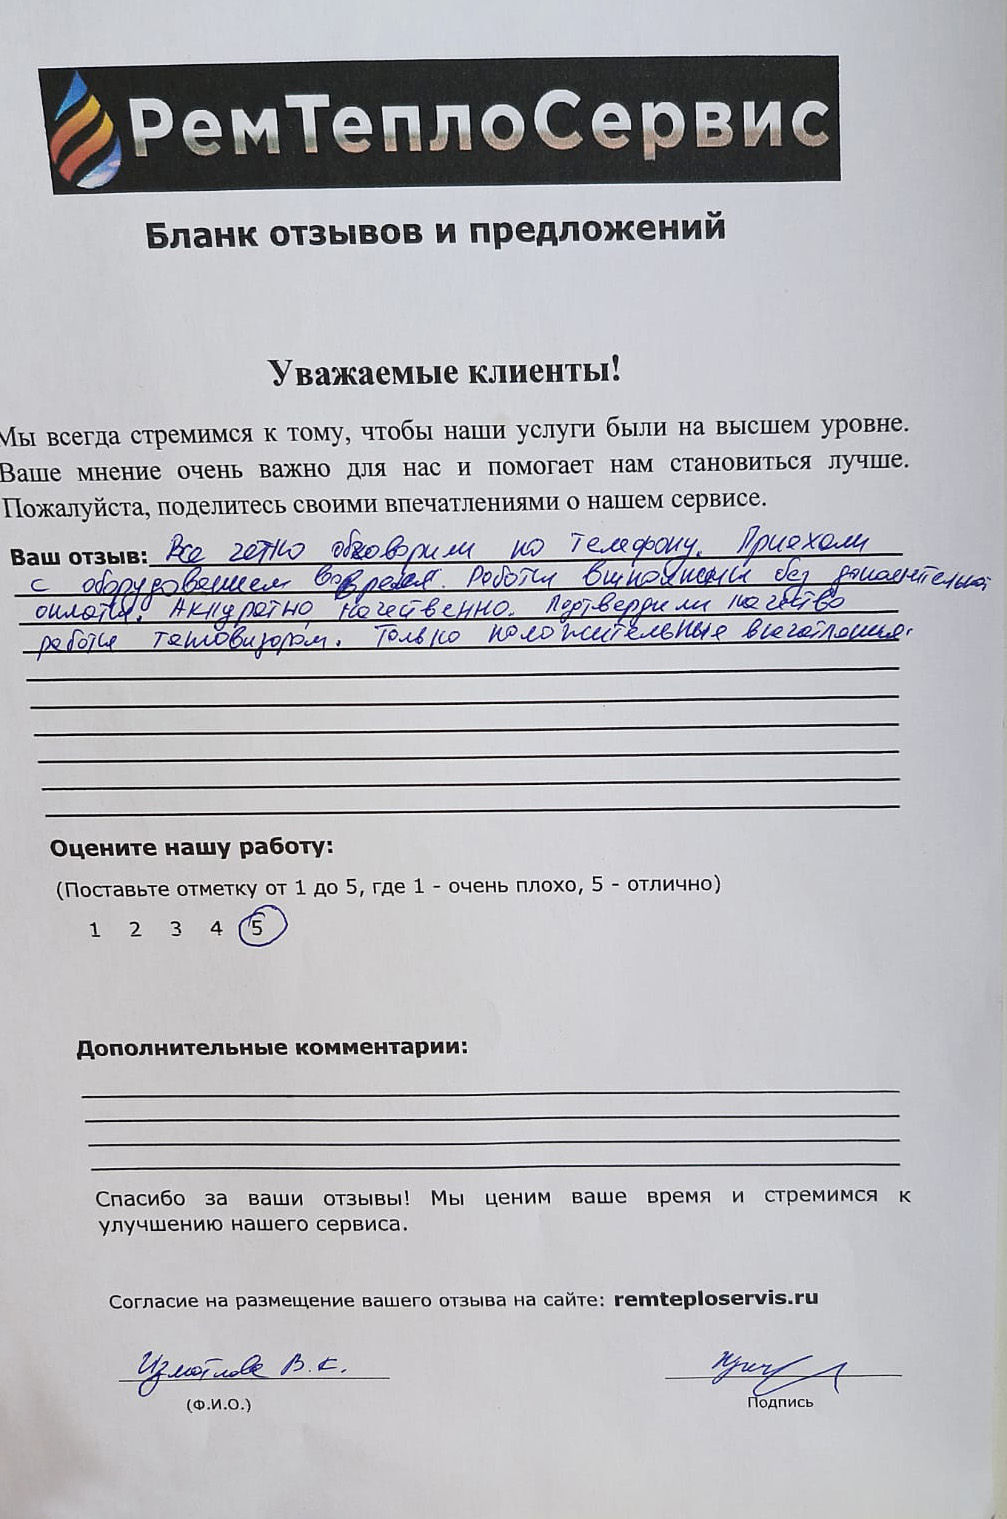 РемТеплоСервис
Бланк отзывов и предложений
Уважаемые клиенты!
Мы всегда стремимся к тому, чтобы наши услуги были на высшем уровне.
Ваше мнение очень важно для нас и помогает нам становиться лучше.
Пожалуйста, поделитесь своими впечатлениями о нашем сервисе.
Ваш отзыв: Все четко обговорили по телефону. Приехали
с оборудованием вовремя. Работы выполнены без дополнительной
оплаты. Аккуратно, качественно. Подтвердили качество
работы тепловизором. Только положительные впечатления.
Оцените нашу работу:
(Поставьте отметку от 1 до 5, где 1 - очень плохо, 5 - отлично)
1 2 3 4 5
Дополнительные комментарии:
Спасибо за ваши отзывы! Мы ценим ваше время и стремимся к
улучшению нашего сервиса.
Согласие на размещение вашего отзыва на сайте: remteploservis.ru
В.К.
(Ф.И.О.)
Подпись